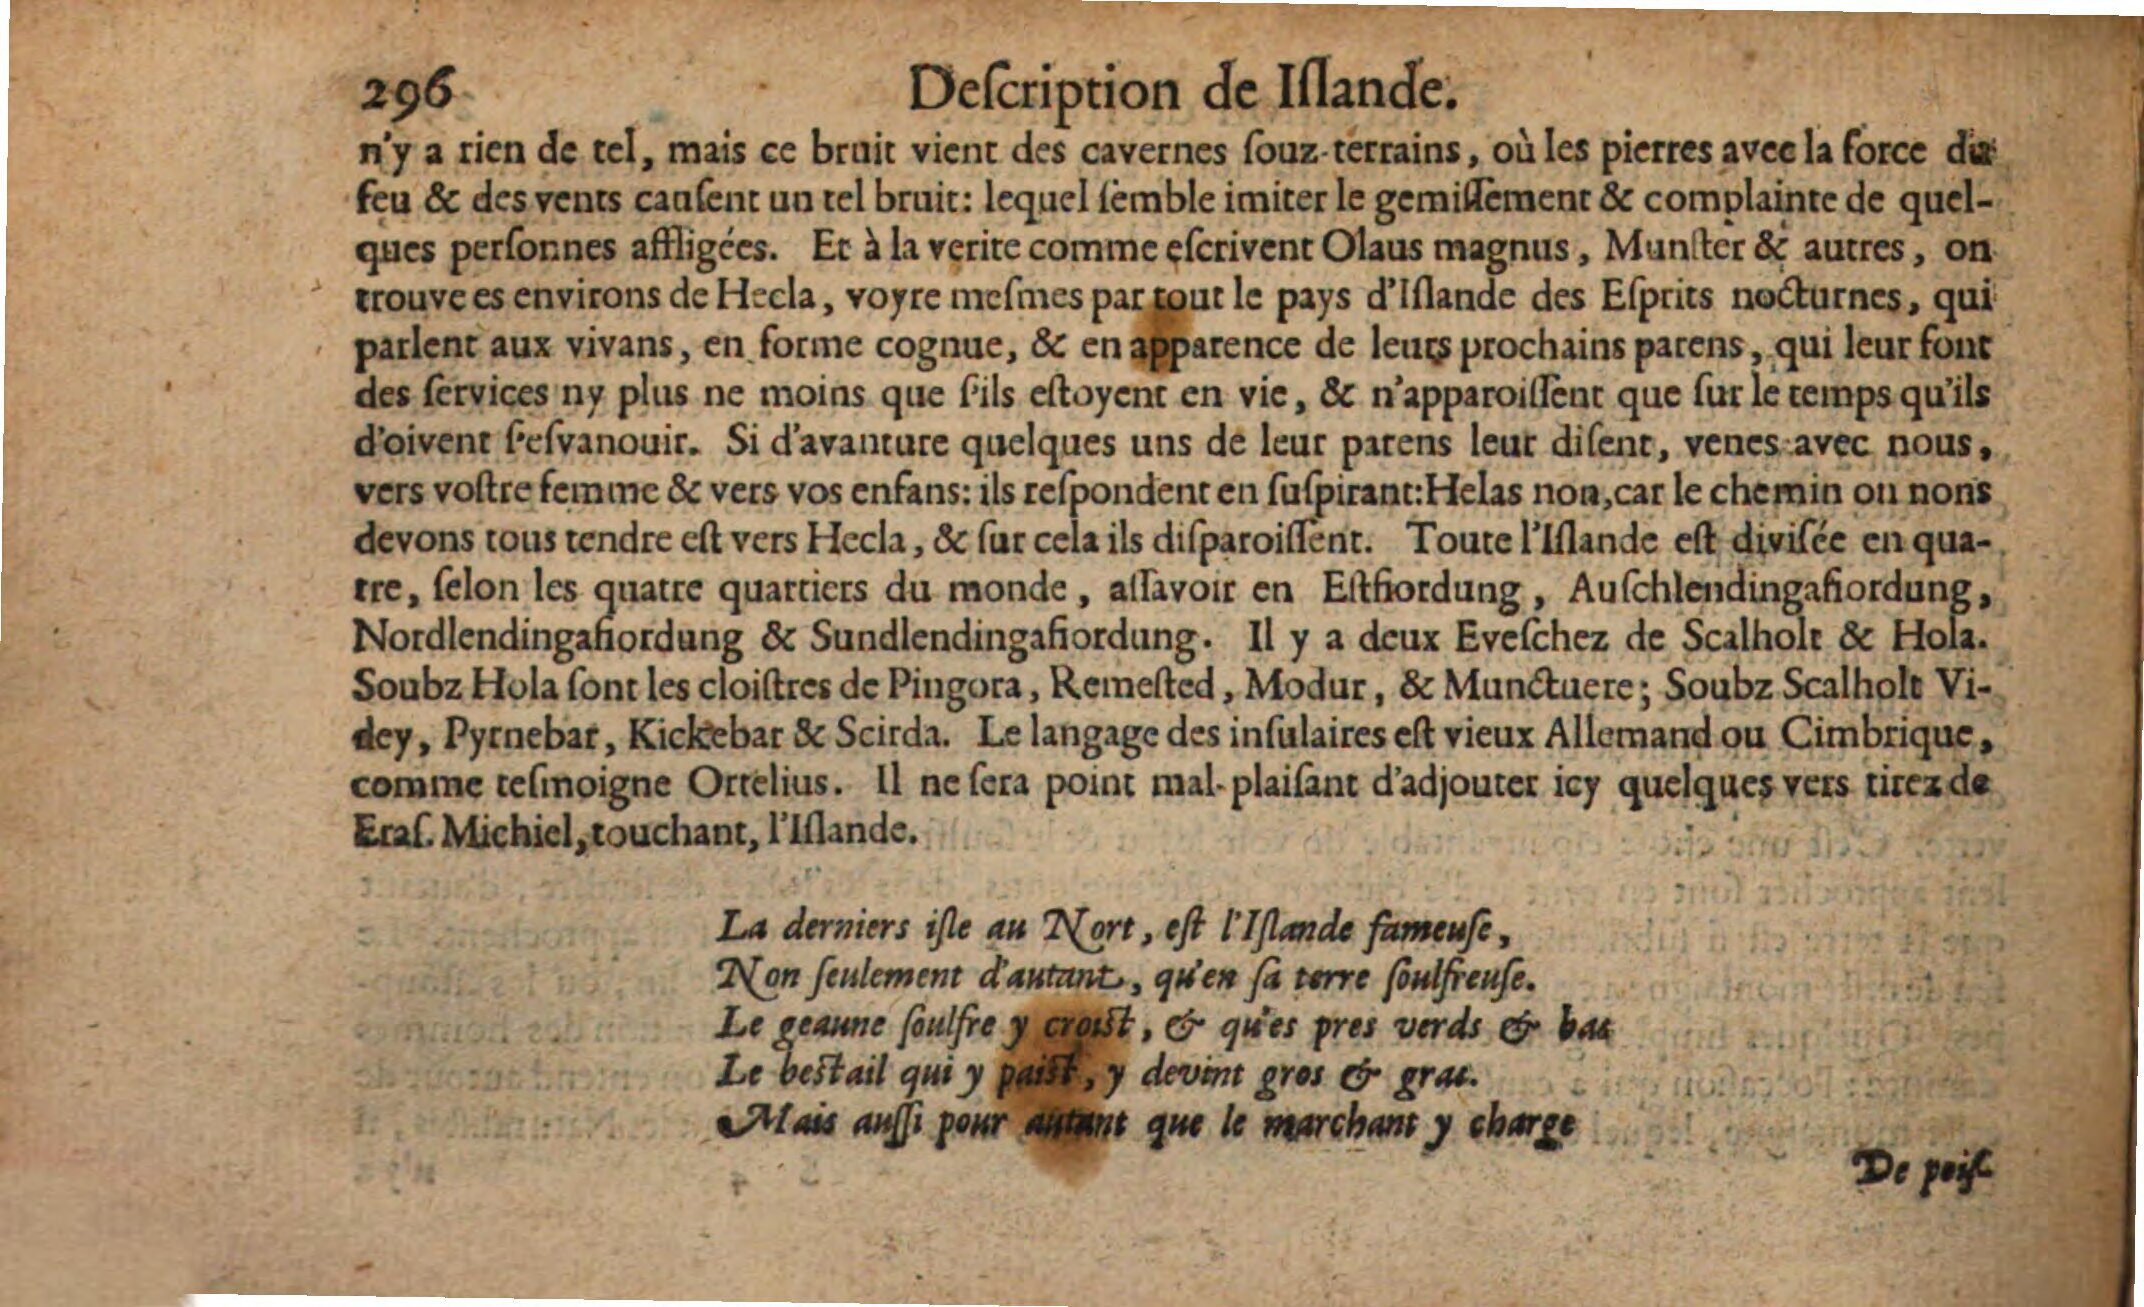 296 Deſcription de Iſlande.
n'y a rien de tel, mais ce bruit vient des cavernes ſouz-terrains, où les pierres avec la force du
feu & des vents cauſent un tel bruit: lequel ſemble imiter le gemiſſement & complainte de quel-
ques perſonnes affligées. Et à la verite comme eſcrivent Olaus magnus, Munſter & autres, on
trouve es environs de Hecla, voyre meſmes par tout le pays d'Iſlande des Eſprits nocturnes, qui
parlent aux vivans, en forme cognue, & en apparence de leurs prochains parens, qui leur font
des ſervices ny plus ne moins que ſ'ils eſtoyent en vie, & n'apparoiſſent que ſur le temps qu'ils
d'oivent ſ'eſvanouir. Si d'avanture quelques uns de leur parens leur diſent, venes avec nous,
vers voſtre femme & vers vos enfans: ils reſpondent en ſuſpirant: Helas non, car le chemin ou nons
devons tous tendre eſt vers Hecla, & ſur cela ils diſparoiſſent. Toute l'Iſlande eſt diviſée en qua-
tre, ſelon les quatre quartiers du monde, aſſavoir en Eſtfiordung, Auſchlendingafiordung,
Nordlendingafiordung & Sundlendingafiordung. Il y a deux Eveſchez de Scalholt & Hola.
Soubz Hola ſont les cloiſtres de Pingora, Remeſted, Modur, & Munctuere; Soubz Scalholt Vi-
dey, Pyrnebar, Kickebar & Scirda. Le langage des inſulaires eſt vieux Allemand ou Cimbrique,
comme teſmoigne Ortelius. Il ne ſera point mal-plaiſant d'adjouter icy quelques vers tirez de
Eraſ. Michiel, touchant, l'Iſlande.
La derniers iſle au Nort, eſt l'Iſlande fameuſe,
Non ſeulement d'autant, qu'en ſa terre ſoulfreuſe.
Le geaune ſoulfre y croiſt, & qu'es pres verds & bas
Le beſtail qui y paiſt, y devint gros & gras.
Mais auſſi pour autant que le marchant y charge
De poiſ-